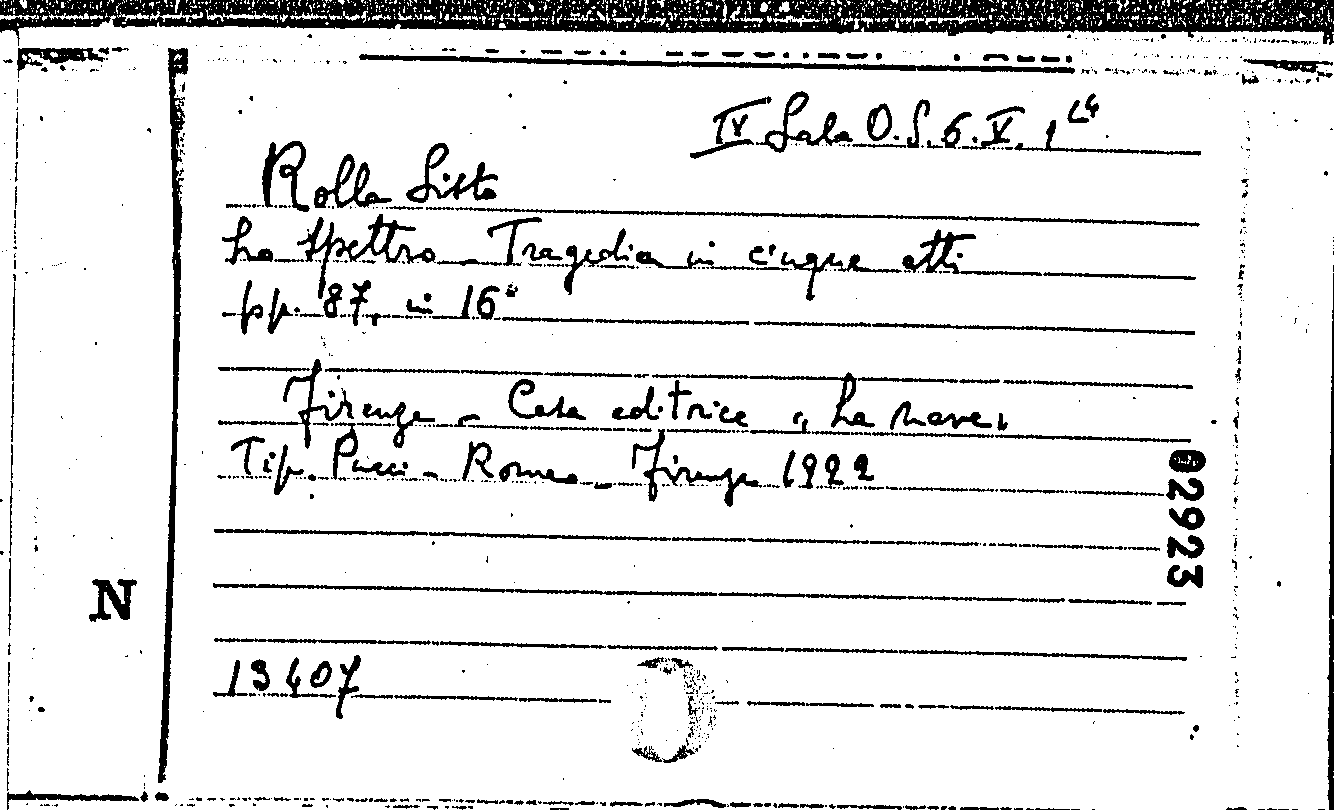 IV Sala O.S. 6. V. 1
Rolla Sisto
Lo Spettro - Tragedia in cinque atti
pp. 87, in 16°
Firenze - Casa editrice "La Nave"
Tip. Pucci - Romeo - Firenze 1922
02923
N
13407